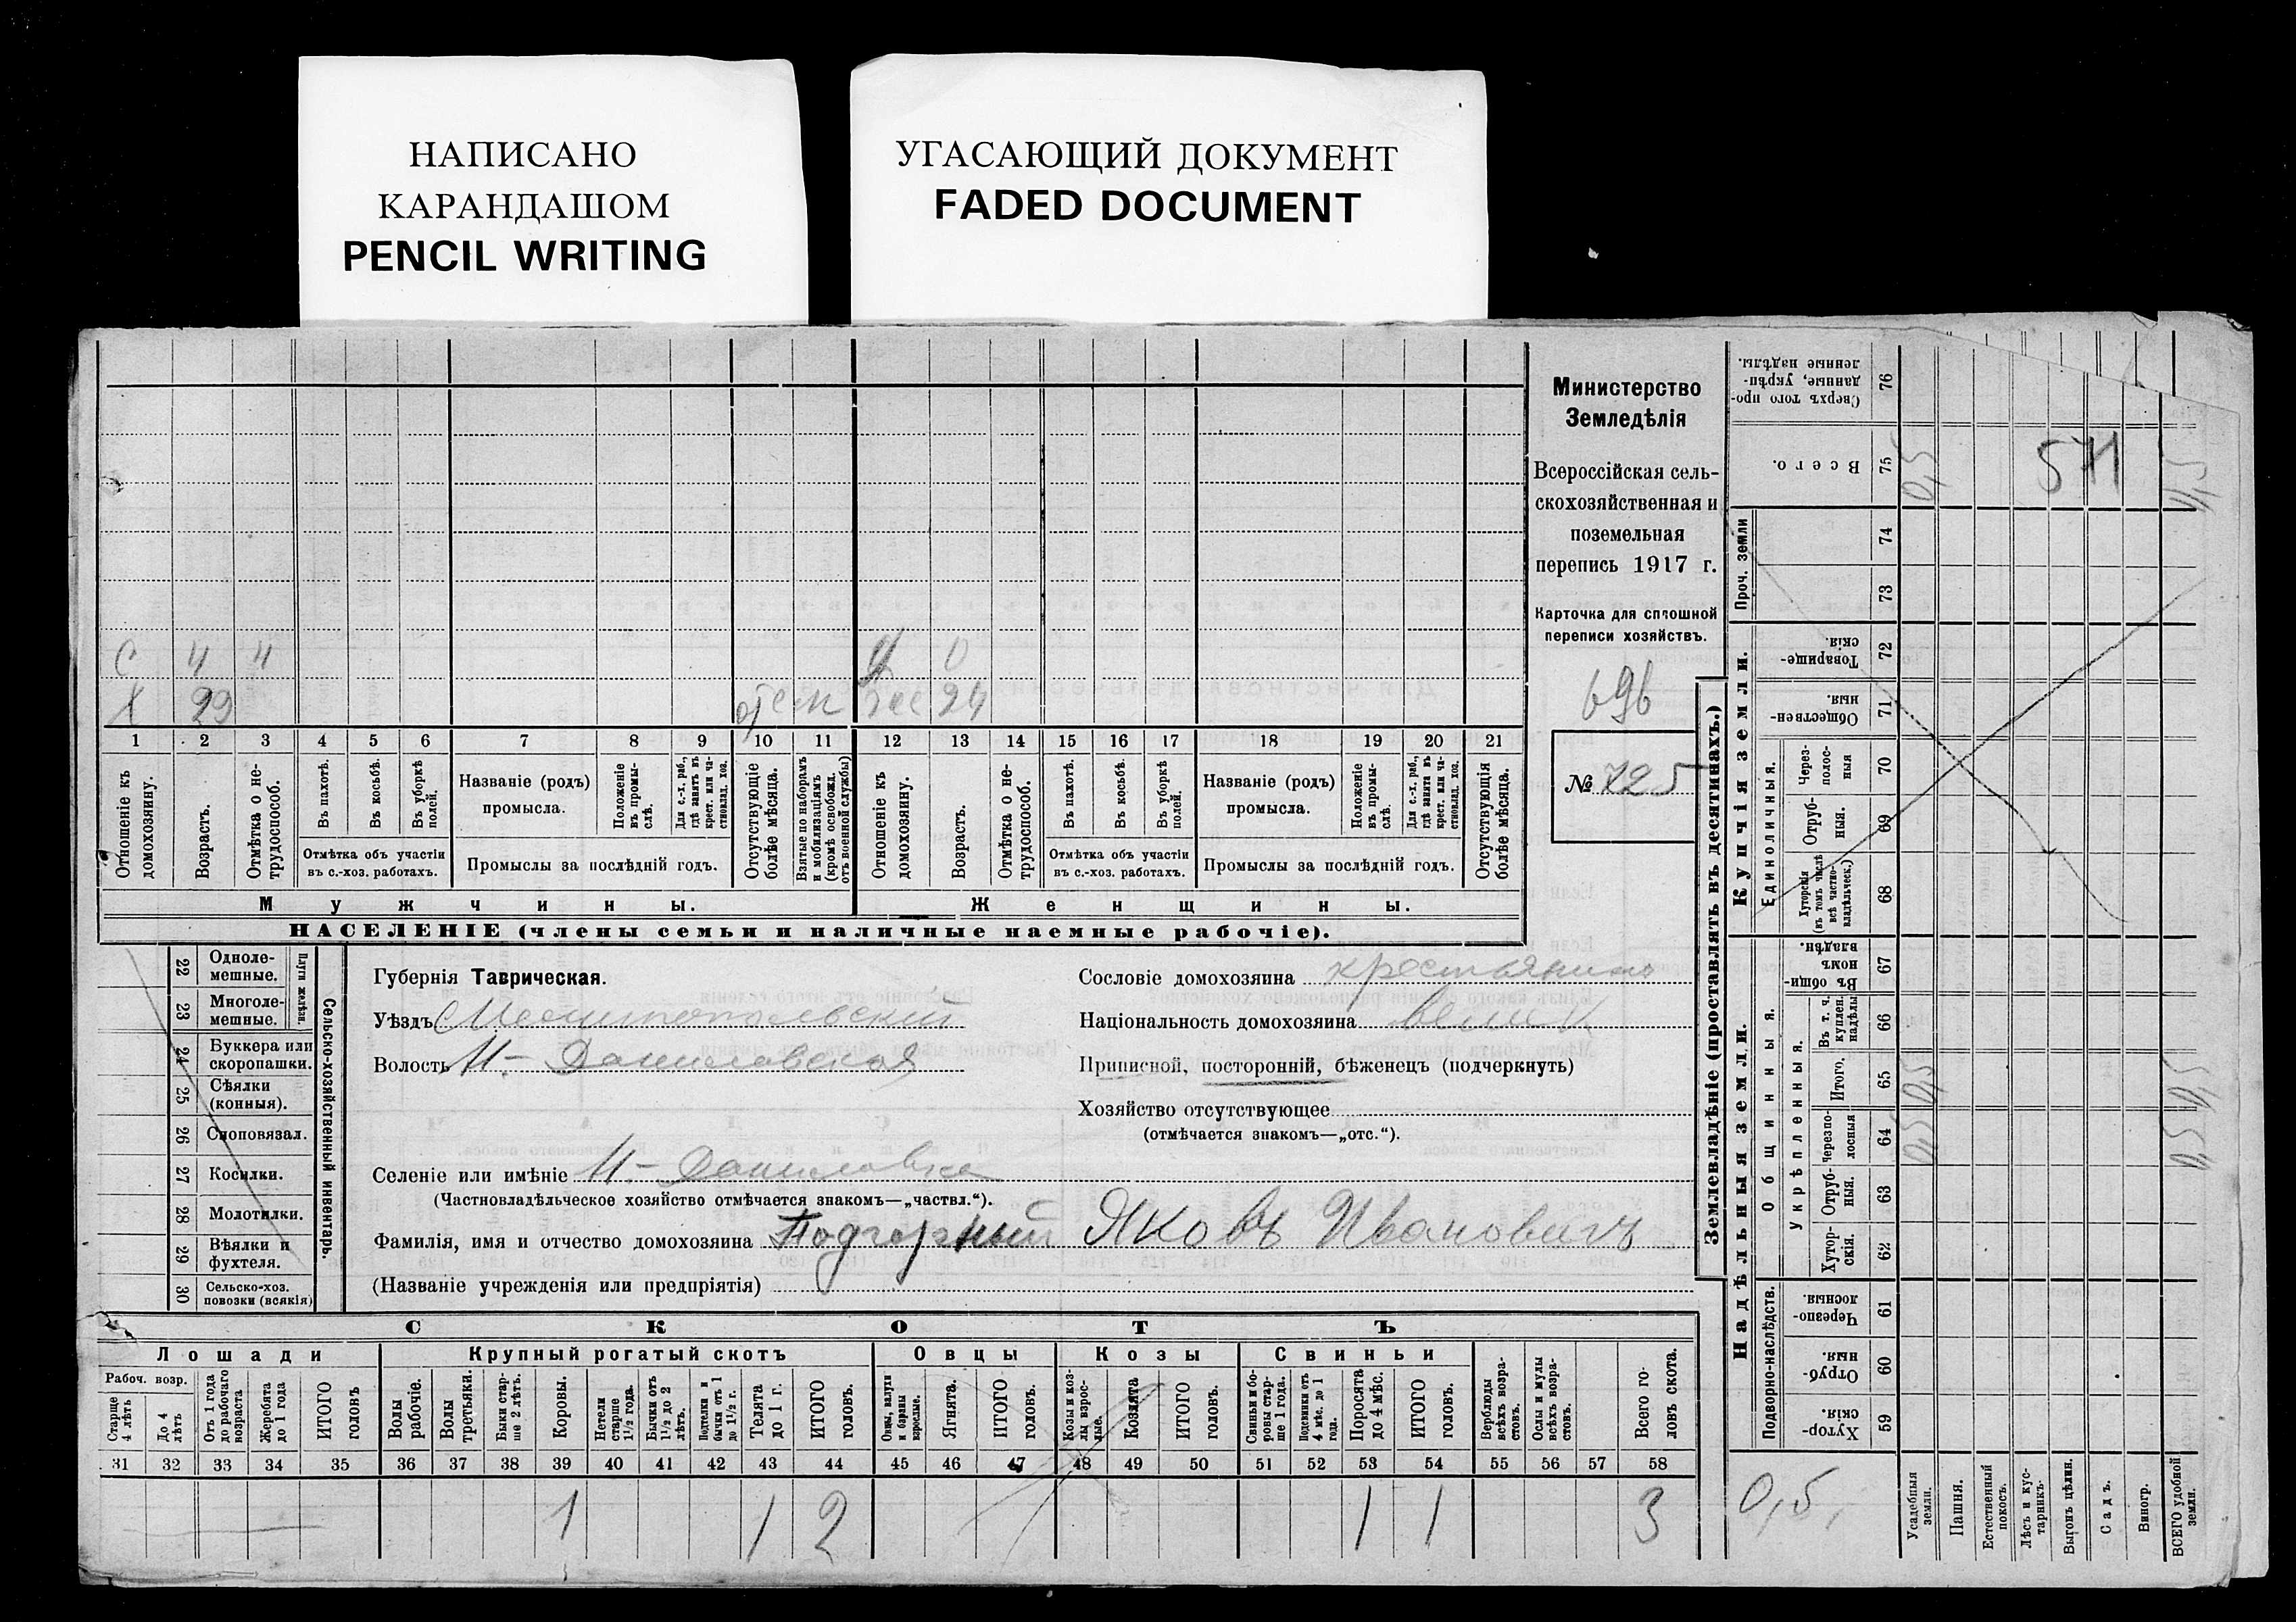 НАПИСАНО
КАРАНДАШОМ
PENCIL WRITING
УГАСАЮЩИЙ ДОКУМЕНТ
FADED DOCUMENT
Министерство
Земледѣлія
Всероссійская сель-
скохозяйственная и
поземельная
перепись 1917 г.
Карточка для сплошной
переписи хозяйствъ.
696
№ 725
С 4 Ч
Х 29
24
1 2 3 4 5 6 7 8 9 10 11 12 13 14 15 16 17 18 19 20 21
Отношеніе къ домохозяину.
Возрастъ.
Отмѣтка о не-трудоспособ.
Въ пахотѣ.
Въ косьбѣ.
Въ уборкѣ полей.
Отмѣтка объ участіи
въ с.-хоз. работахъ.
Названіе (родъ)
промысла.
Положеніе въ промы-слѣ.
Для с.-х. раб., гдѣ занятъ въ крест. или ча-стновлад. хоз.
Промыслы за послѣдній годъ.
Отсутствующіе болѣе мѣсяца.
Взятые по наборамъ и мобилизаціямъ (кромѣ освобожд. отъ военной службы)
Отношеніе къ домохозяину.
Возрастъ.
Отмѣтка о не-трудоспособ.
Въ пахотѣ.
Въ косьбѣ.
Въ уборкѣ полей.
Отмѣтка объ участіи
въ с.-хоз. работахъ.
Названіе (родъ)
промысла.
Положеніе въ промы-слѣ.
Для с.-х. раб., гдѣ занята въ крест. или ча-стновлад. хоз.
Промыслы за послѣдній годъ.
Отсутствующія болѣе мѣсяца.
Мужчины.
Женщины.
НАСЕЛЕНІЕ (члены семьи и наличные наемные рабочіе).
22 Одноле-мешные.
23 Многоле-мешные.
Плуги желѣзн.
24 Буккера или скоропашки.
25 Сѣялки (конныя).
26 Сноповязал.
27 Косилки.
28 Молотилки.
29 Вѣялки и фухтеля.
30 Сельско-хоз. повозки (всякія)
Сельско-хозяйственный инвентарь.
Губернія Таврическая.
Уѣздъ Мелитопольскій
Волость Н.-Даниловская
Селеніе или имѣніе Н.-Даниловка
(Частновладѣльческое хозяйство отмѣчается знакомъ—„частвл.“).
Фамилія, имя и отчество домохозяина Подгорный Яковъ Ивановичъ
(Названіе учрежденія или предпріятія)
Сословіе домохозяина крестьянинъ
Національность домохозяина велик
Приписной, посторонній, бѣженецъ (подчеркнуть)
Хозяйство отсутствующее
(отмѣчается знакомъ—„отс.“).
СКОТЪ
Лошади
Крупный рогатый скотъ
Овцы
Козы
Свиньи
Рабоч. возр.
Старше 4 лѣтъ
До 4 лѣтъ
Отъ 1 года до рабочаго возраста
Жеребята до 1 года
ИТОГО головъ
Волы рабочіе.
Волы третьяки.
Быки стар-ше 2 лѣтъ.
Коровы.
Нетели старше 1½ года.
Бычки отъ 1½ до 2 лѣтъ.
Подтелки и бычки отъ 1 до 1½ г.
Телята до 1 г.
ИТОГО головъ.
Овцы, валухи и бараны взрослые.
Ягнята.
ИТОГО головъ.
Козы и коз-лы взрос-лые.
Козлята
ИТОГО головъ.
Свиньи и бо-ровы стар-ше 1 года.
Подсвинки отъ 4 мѣс. до 1 года.
Поросята до 4 мѣс.
ИТОГО головъ.
Верблюды всѣхъ возра-стовъ.
Ослы и мулы всѣхъ возра-стовъ.
Всего го-ловъ скота.
31 32 33 34 35 36 37 38 39 40 41 42 43 44 45 46 47 48 49 50 51 52 53 54 55 56 57 58
1 1 2 1 1 3
Землевладѣніе (проставлять въ десятинахъ.)
Надѣльныя земли.
Купчія земли.
Проч. земли
Подворно-наслѣдств.
Общинныя.
Укрѣпленныя.
Единоличныя.
Хутор-скія. 59
Отруб-ныя. 60
Черезпо-лосныя. 61
Хутор-скія. 62
Отруб-ныя. 63
Черезпо-лосныя 64
Итого. 65
Въ т. ч. куплен. надѣлы 66
Въ общин-номъ владѣн. 67
Хуторскія (въ томъ числѣ всѣ частно-владѣльческ.) 68
Отруб-ныя. 69
Через-полос-ныя 70
Обществен-ныя. 71
Товарище-скія. 72
73
74
Всего. 75
Сверхъ того про-данные, укрѣп-ленные надѣлы. 76
Усадебныя земли.
Пашня.
Естественный покосъ.
Лѣсъ и кус-тарникъ.
Выгонъ цѣлин.
Садъ.
Виногр.
ВСЕГО удобной земли.
0,5
0,5
0,5
0,5
0,5
0,5
0,5
571